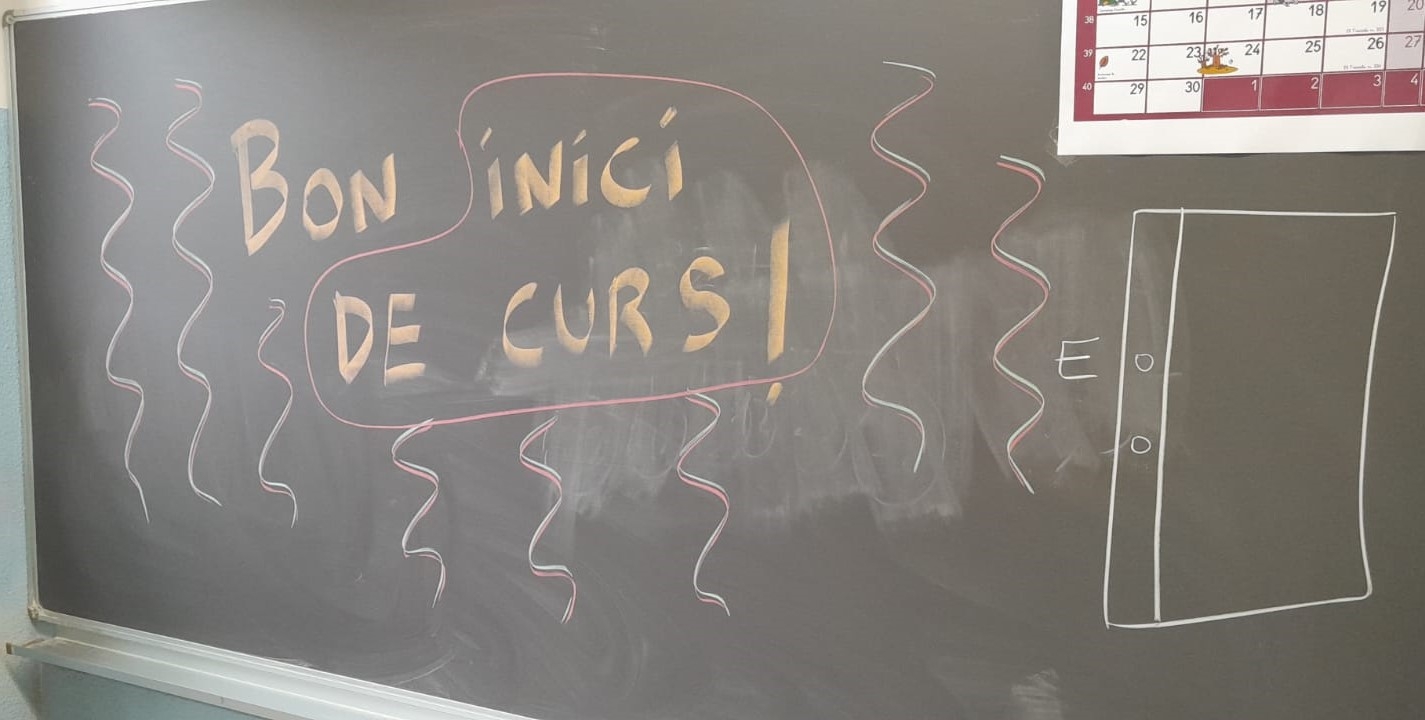 BON INICI
DE CURS!
E
38 15 16 17 18 19 20
39 22 23 24 25 26 27
40 29 30 1 2 3 4